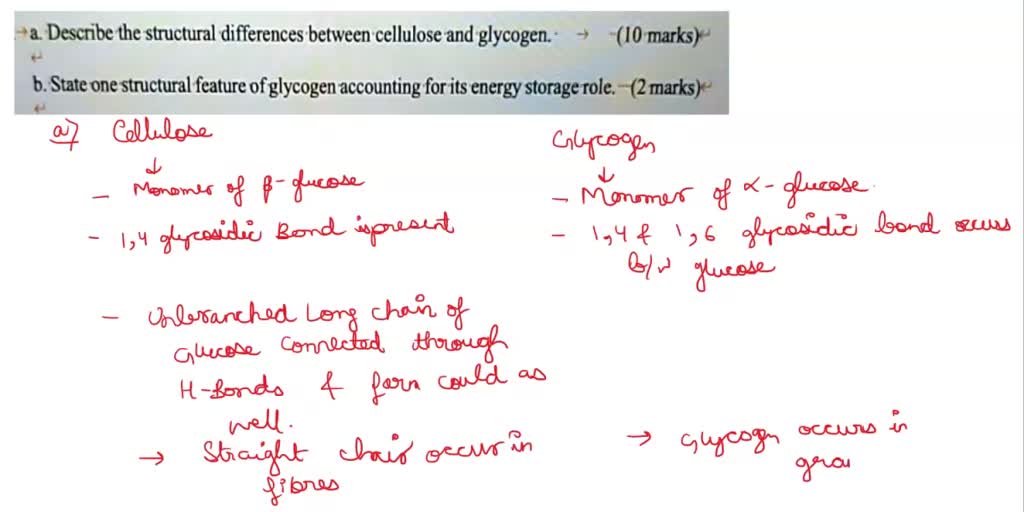 a. Describe the structural differences between cellulose and glycogen. → (10 marks)
b. State one structural feature of glycogen accounting for its energy storage role. (2 marks)
a) Cellulose
Glycogen
↓
↓
- Monomer of β-glucose
- Monomer of α-glucose.
- 1,4 glycosidic Bond is present
- 1,4 & 1,6 glycosidic bond occurs
b/w glucose
- Unbranched Long chain of
Glucose connected through
H-Bonds & form could as
well.
→ Straight chair occur in
fibres
→ Glycogen occurs in
gra